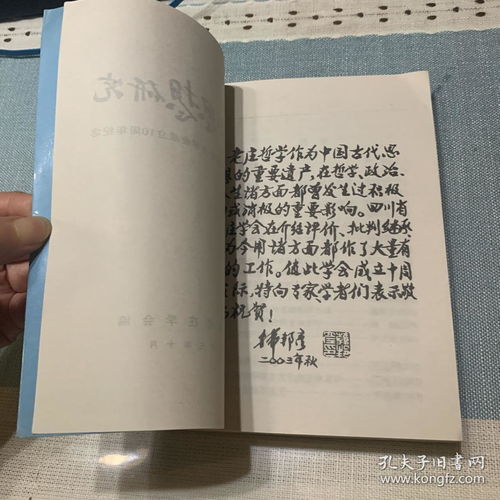 想研究
成立10周年纪念
庄学会编
年十月
老庄哲学作为中国古代思
想的重要遗产，在哲学、政治、
生诸方面都曾发生过积极
或消极的重要影响。四川省
庄学会在介绍评价、批判继承、
为今用诸方面都作了大量有
的工作。值此学会成立十周
之际，特向专家学者们表示敬
与祝贺！
韩邦彦
二〇〇三年秋
孔夫子旧书网
www.kongfz.com